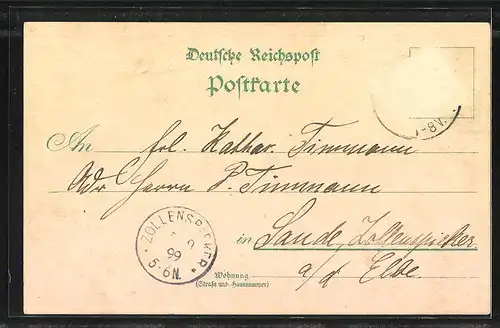 Deutsche Reichspost
Postkarte
7-8V.
An Frl. Kathar. Timmann
Adr Herrn P. Timmann
in Sande, Zollenspieker
a/d Elbe
ZOLLENSPIEKER
2
99
5-6N.
Wohnung
(Straße und Hausnummer)